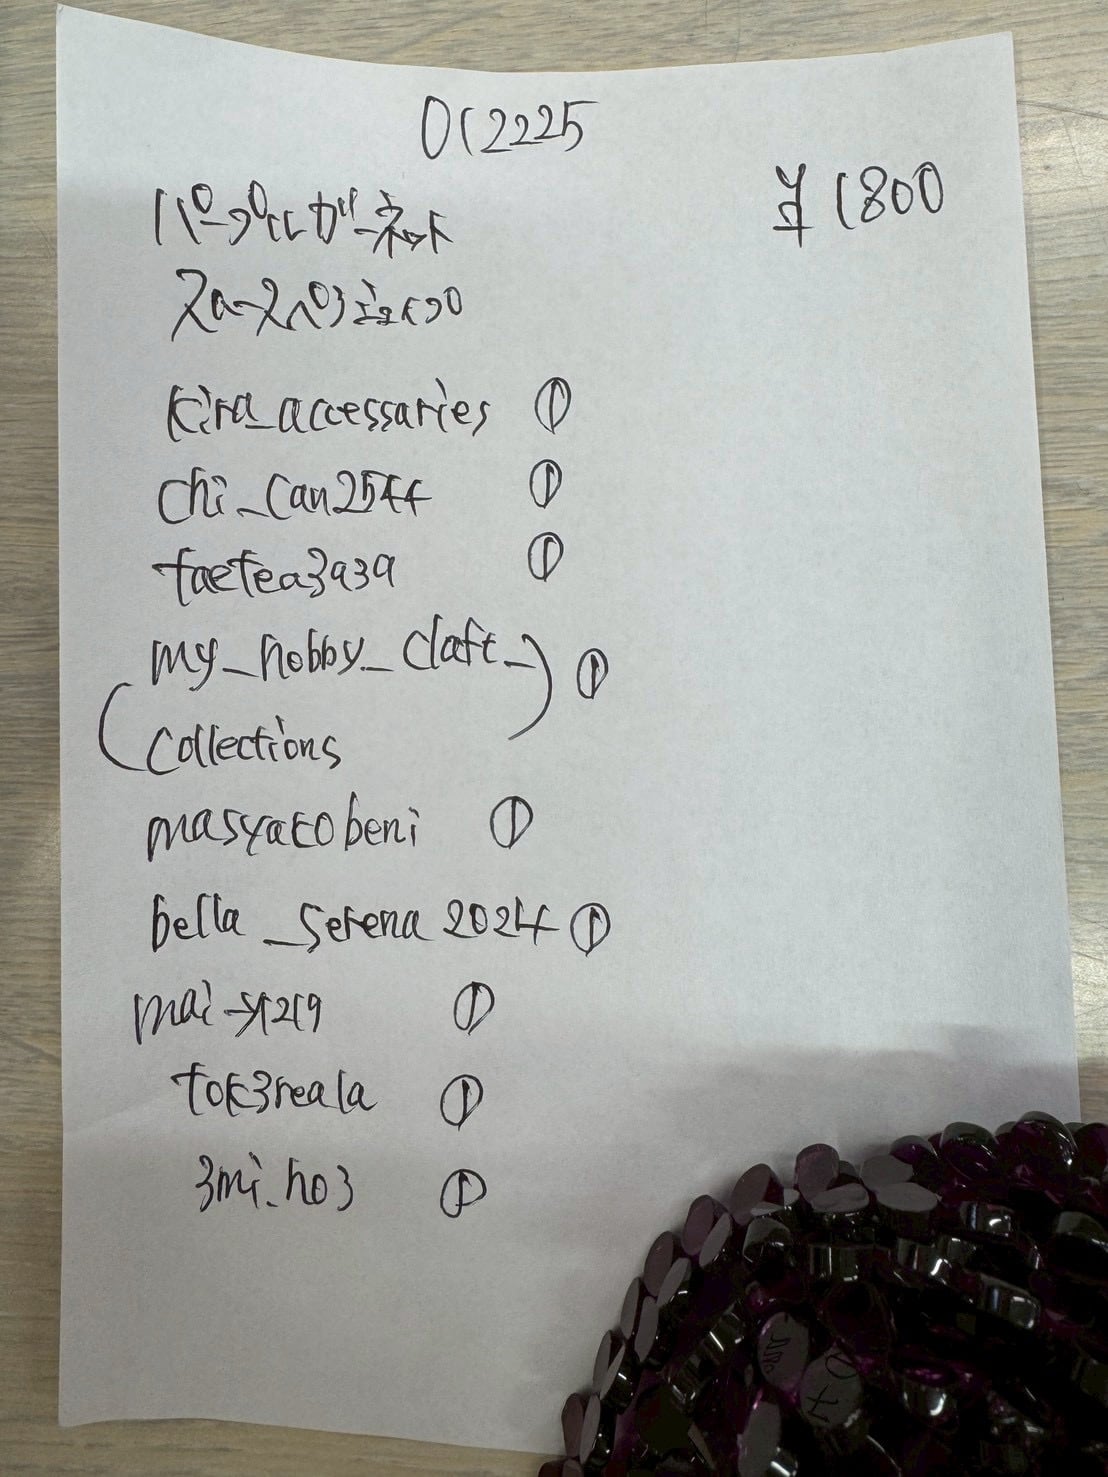 012225
パープルガーネット
¥1800
kira_accessaries ①
chi_can2544 ①
taetea3a3a ①
my_hobby_claft_ ①
collections
masyatobeni ①
bella_serena2024 ①
①
tok3reala ①
3mi.ho3 ①